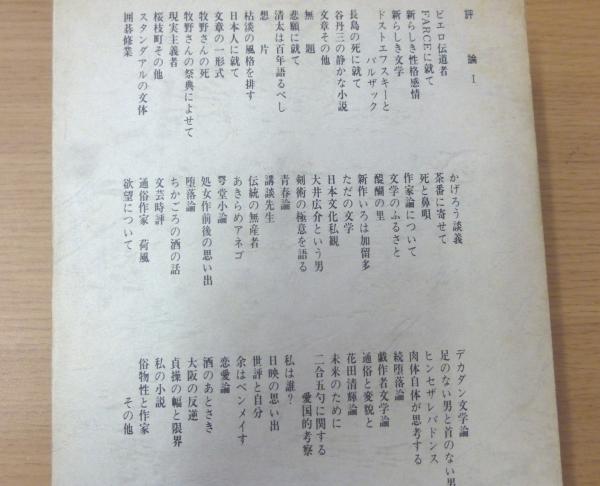 評論 I
ピエロ伝道者
FARCEに就て
新らしき性格感情
新らしき文学
ドストエフスキーと
バルザック
長島の死に就て
谷丹三の静かな小説
文章その他
無題
悲願に就て
清太は百年語るべし
想片
枯淡の風格を排す
日本人に就て
文章の一形式
牧野さんの死
牧野さんの祭典によせて
現実主義者
桜枝町その他
スタンダアルの文体
囲碁修業
かげろう談義
茶番に寄せて
死と鼻唄
作家論について
文学のふるさと
醍醐の里
新作いろは加留多
ただの文学
日本文化私観
大井広介という男
剣術の極意を語る
青春論
講談先生
伝統の無産者
あきらめアネゴ
咢堂小論
処女作前後の思い出
堕落論
ちかごろの酒の話
文芸時評
通俗作家 荷風
欲望について
デカダン文学論
足のない男と首のない男
ヒンセザレバドンス
肉体自体が思考する
続堕落論
戯作者文学論
通俗と変貌と
花田清輝論
未来のために
二合五勺に関する
愛国的考察
私は誰?
日映の思い出
世評と自分
余はベンメイす
恋愛論
酒のあとさき
大阪の反逆
貞操の幅と限界
私の小説
俗物性と作家
その他